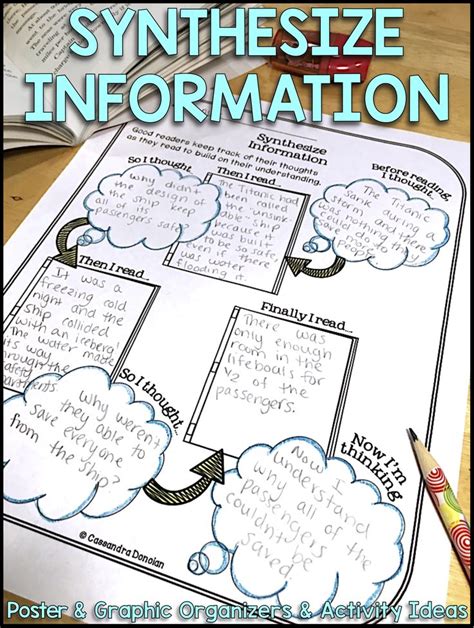 SYNTHESIZE
INFORMATION
Synthesize
Information
Good readers keep track of their thoughts
as they read to build on their understanding.
Before reading,
I thought...
The Titanic
sank during a
storm and there
was nothing they
could do to
save
people
Then I read...
The Titanic had
been called
the "unsink
able" ship
because it
was built
to be safe
even if there
was water
flooding it.
So I thought...
Why didn't
the design of
the ship keep
all of its
passengers safe?
Then I read...
It was a
freezing cold
night and the
ship collided
with an iceberg!
The water made
its way
through the
safety
compartments
So I thought...
Why weren't
they able to
save everyone
from the ship?
Finally I read...
There was
only enough
room in the
lifeboats for
1/2 of the
passengers.
Now I'm
thinking
Now I
understand
why all of the
passengers
couldn't be
saved
© Cassandra Donoian
Poster & Graphic Organizers & Activity Ideas